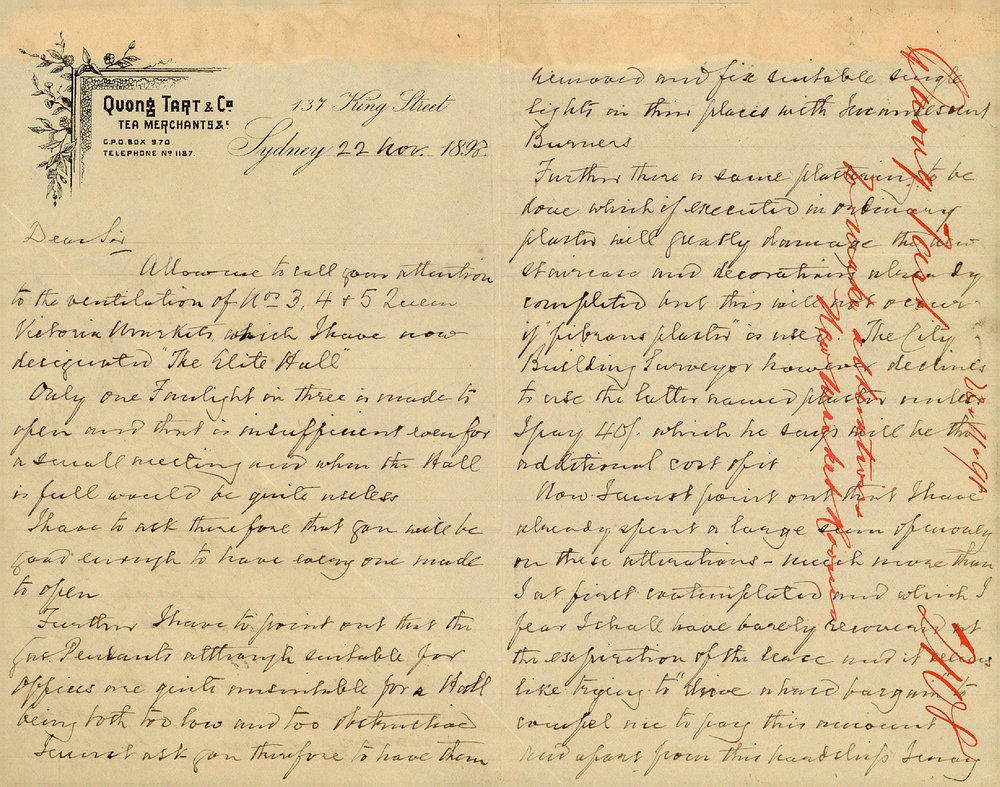 Quong Tart & Co
Tea Merchants &c
G.P.O. Box 970
Telephone No 1187.
137 King Street
Sydney 22 Nov. 1898.
Dear Sir
Allow me to call your attention
to the ventilation of Nos 3, 4 & 5 Queen
Victoria Markets which I have now
designated "The Elite Hall"
Only one Fanlight in three is made to
open and that is insufficient even for
a small meeting and when the Hall
is full would be quite useless
I have to ask therefore that you will be
good enough to have every one made
to open
Further I have to point out that the
Gas Pendants although suitable for
Offices are quite unsuitable for a Hall
being both too low and too obstructive
I must ask you therefore to have them
removed and fix suitable single
lights in their places with Incandescent
Burners
Further there is some plastering to be
done which if executed in ordinary
plaster will greatly damage the new
staircase and decorations already
completed but this will not occur
if "fibrous plaster" is used. The City
Building Surveyor however declines
to use the latter named plaster unless
I pay 40/- which he says will be the
additional cost of it
Now I must point out that I have
already spent a large sum of money
on these alterations - much more than
I at first contemplated and which I
fear I shall have barely recovered at
the expiration of the lease and it seems
like trying to "drive a hard bargain" to
compel me to pay this amount
and apart from this hardship I may
Quong Tart
re alterations
New Market Rooms